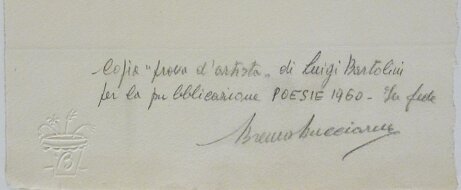 Copia "prova d'artista" di Luigi Bartolini
per la pubblicazione POESIE 1960 - In fede
Bruno Bucciarelli